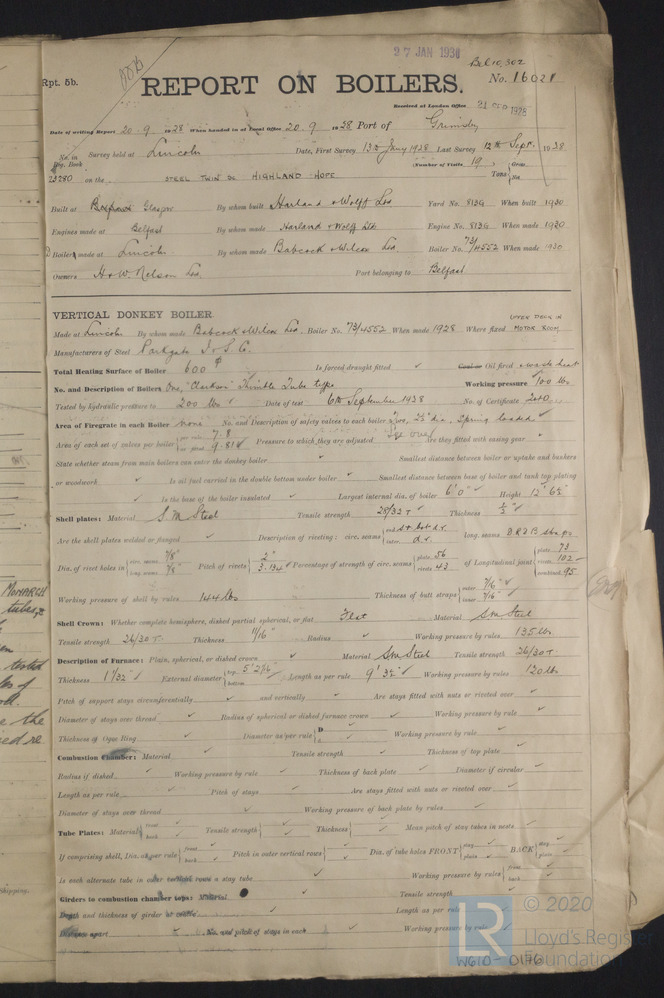 27 JAN 1930
Bel 10,302
Rpt. 5b.
REPORT ON BOILERS.
No. 16021
Received at London Office
Date of writing Report 20.9.1928 When handed in at Local Office 20.9.1928 Port of Grimsby
No. in Reg. Book Survey held at Lincoln Date, First Survey 13th Jany 1928 Last Survey 12th Sept. 1928
(Number of Visits 19)
23280 on the STEEL TWIN SC HIGHLAND HOPE Tons { Gross Net
Built at Glasgow By whom built Harland & Wolff Ltd Yard No. 813G When built 1930
Engines made at Belfast By whom made Harland & Wolff Ltd Engine No. 813G When made 1930
Boilers made at Lincoln By whom made Babcock & Wilcox Ltd. Boiler No. 73/4552 When made 1930
Owners H & W. Nelson Ltd. Port belonging to Belfast
VERTICAL DONKEY BOILER.
UPPER DECK IN
Made at Lincoln By whom made Babcock & Wilcox Ltd. Boiler No. 73/4552 When made 1928 Where fixed MOTOR ROOM
Manufacturers of Steel Parkgate I & S. Co.
Total Heating Surface of Boiler 600 Is forced draught fitted ✓ Coal or Oil fired & waste heat
No. and Description of Boilers One, "Clarkson" Thimble Tube type Working pressure 100 lbs
Tested by hydraulic pressure to 200 lbs Date of test 6th September 1928 No. of Certificate 240
Area of Firegrate in each Boiler none No. and Description of safety valves to each boiler Two, 2½" dia, Spring loaded
Area of each set of valves per boiler { per rule 7.8 as fitted 9.81 Pressure to which they are adjusted Are they fitted with easing gear
State whether steam from main boilers can enter the donkey boiler ✓ Smallest distance between boiler or uptake and bunkers
or woodwork ✓ Is oil fuel carried in the double bottom under boiler ✓ Smallest distance between base of boiler and tank top plating
✓ Is the base of the boiler insulated ✓ Largest internal dia. of boiler 6' 0" Height 12' 6⅝"
Shell plates: Material S.M. Steel Tensile strength 28/32 T Thickness ½"
Are the shell plates welded or flanged ✓ Description of riveting: circ. seams { end inter. d.r. long. seams D.R.D.B. straps
Dia. of rivet holes in { circ. seams 7/8" long. seams 7/8" Pitch of rivets { 2" 3.134" Percentage of strength of circ. seams { plate 56 rivets 43 of Longitudinal joint { plate 73 rivets 102 combined 95
Working pressure of shell by rules 144 lbs Thickness of butt straps { outer 7/16" inner 7/16"
Shell Crown: Whether complete hemisphere, dished partial spherical, or flat Flat Material S.M. Steel
Tensile strength 26/30 T Thickness 11/16" Radius ✓ Working pressure by rules 135 lbs
Description of Furnace: Plain, spherical, or dished crown ✓ Material S.M. Steel Tensile strength 26/30 T
Thickness 11/32" External diameter { top 5' 2¼" bottom Length as per rule 9' 3½" Working pressure by rules 120 lbs
Pitch of support stays circumferentially ✓ and vertically ✓ Are stays fitted with nuts or riveted over ✓
Diameter of stays over thread ✓ Radius of spherical or dished furnace crown ✓ Working pressure by rule ✓
Thickness of Ogee Ring ✓ Diameter as per rule { D d ✓ Working pressure by rule ✓
Combustion Chamber: Material ✓ Tensile strength ✓ Thickness of top plate ✓
Radius if dished ✓ Working pressure by rule ✓ Thickness of back plate ✓ Diameter if circular ✓
Length as per rule ✓ Pitch of stays ✓ Are stays fitted with nuts or riveted over ✓
Diameter of stays over thread ✓ Working pressure of back plate by rules ✓
Tube Plates: Material { front back Tensile strength { Thickness { Mean pitch of stay tubes in nests ✓
If comprising shell, Dia. as per rule { front back Pitch in outer vertical rows { Dia. of tube holes FRONT { stay plain BACK { stay plain
Is each alternate tube in outer vertical rows a stay tube ✓ Working pressure by rules { front back
Girders to combustion chamber tops: Material Tensile strength ✓
Depth and thickness of girder at centre ✓ Length as per rule ✓
Distance apart ✓ No. and pitch of stays in each ✓ Working pressure by rule ✓
W610-0176
© 2020
LR
Lloyd's Register
Foundation
MONARCH
tubes,
tested
the
Shipping.